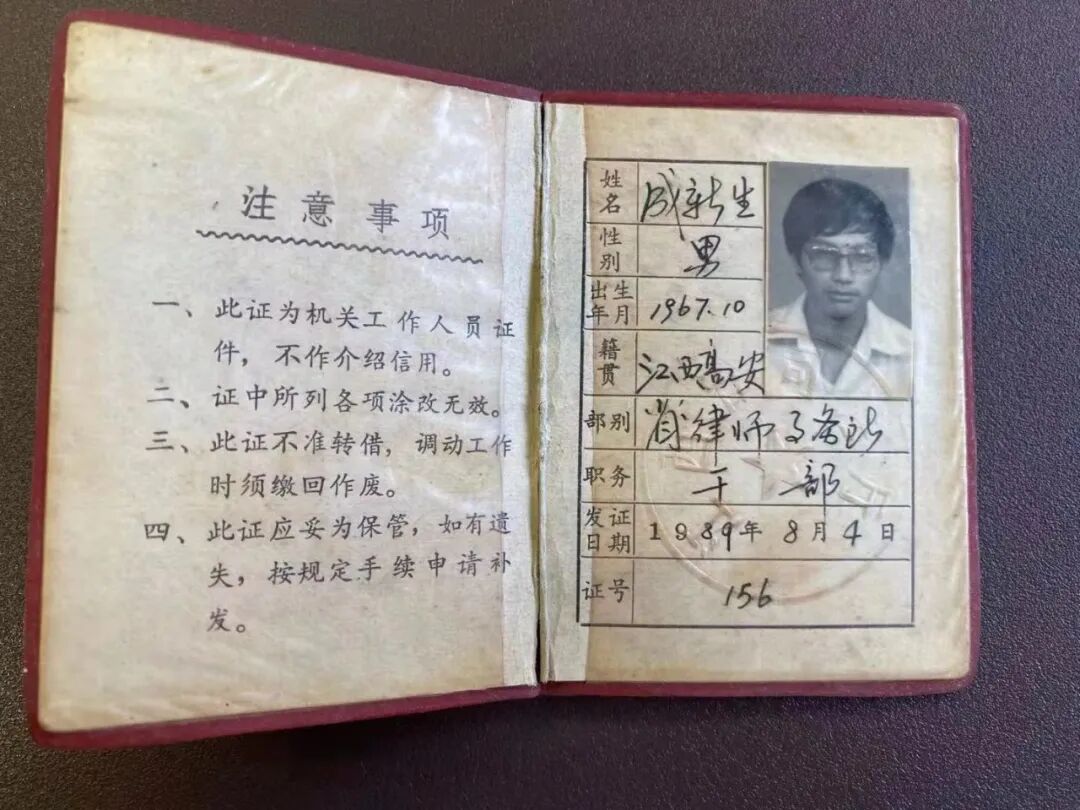 注意事项
一、此证为机关工作人员证
件，不作介绍信用。
二、证中所列各项涂改无效。
三、此证不准转借，调动工作
时须缴回作废。
四、此证应妥为保管，如有遗
失，按规定手续申请补
发。
姓名 成新生
性别 男
出生年月 1967.10
籍贯 江西高安
部别 省律师事务所
职务 干部
发证日期 1989年8月4日
证号 156